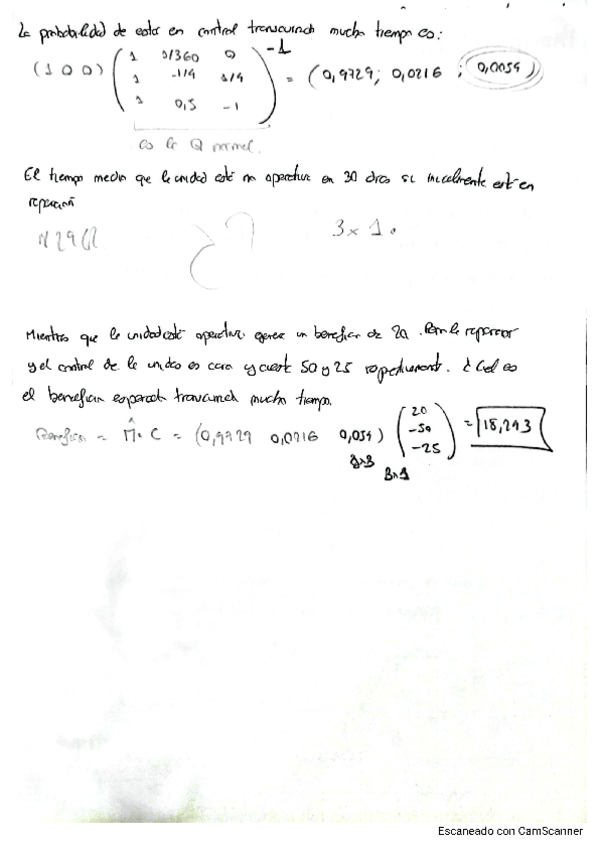 La probabilidad de estar en control transcurrido mucho tiempo es:
(1 0 0) ( 1 1/360 0 ) -1 = (0,9729; 0,0216 ; 0,0054)
1 -1/4 1/4
1 0,5 -1
es la Q normal.
El tiempo medio que la unidad esté no operativa en 30 días si inicialmente está en
reparación
3x1.
Mientras que la unidad esté operativa genera un beneficio de 20. Pero la reparación
y el control de la unidad es cara y cuesta 50 y 25 respectivamente. ¿Cuál es
el beneficio esperado transcurrido mucho tiempo.
Beneficio = Π̂ · C = (0,9729 0,0216 0,054) ( 20 ) = 18,243
-50
-25
3x1
Escaneado con CamScanner